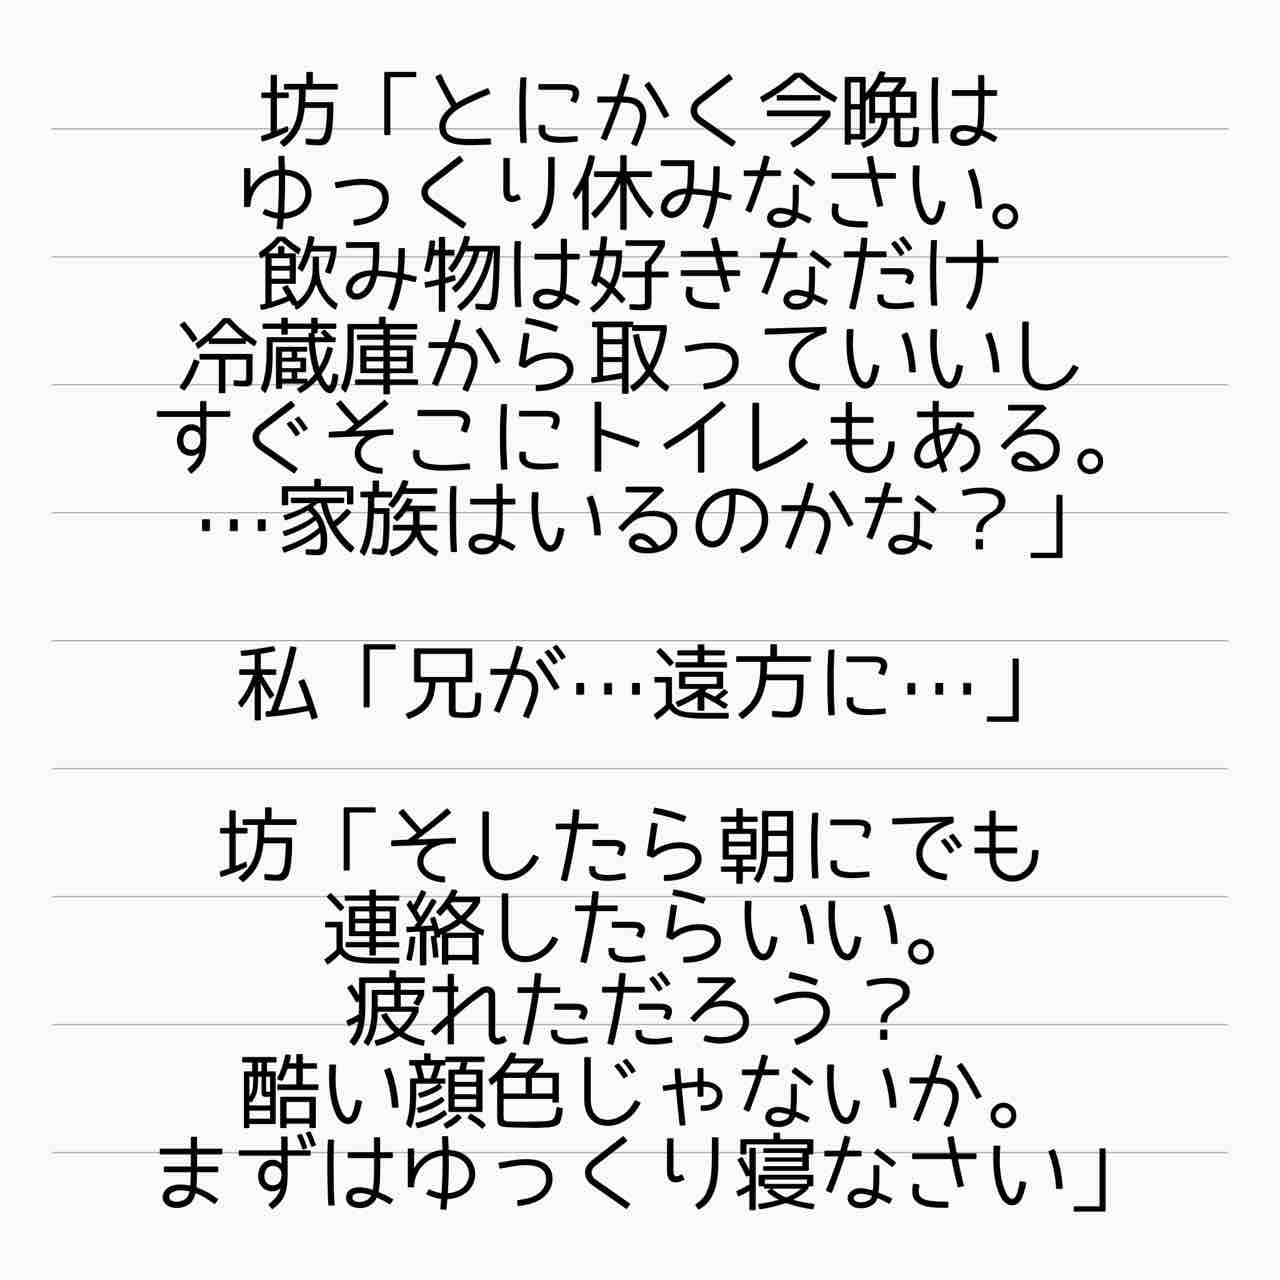 坊「とにかく今晩は
ゆっくり休みなさい。
飲み物は好きなだけ
冷蔵庫から取っていいし
すぐそこにトイレもある。
…家族はいるのかな？」
私「兄が…遠方に…」
坊「そしたら朝にでも
連絡したらいい。
疲れただろう？
酷い顔色じゃないか。
まずはゆっくり寝なさい」